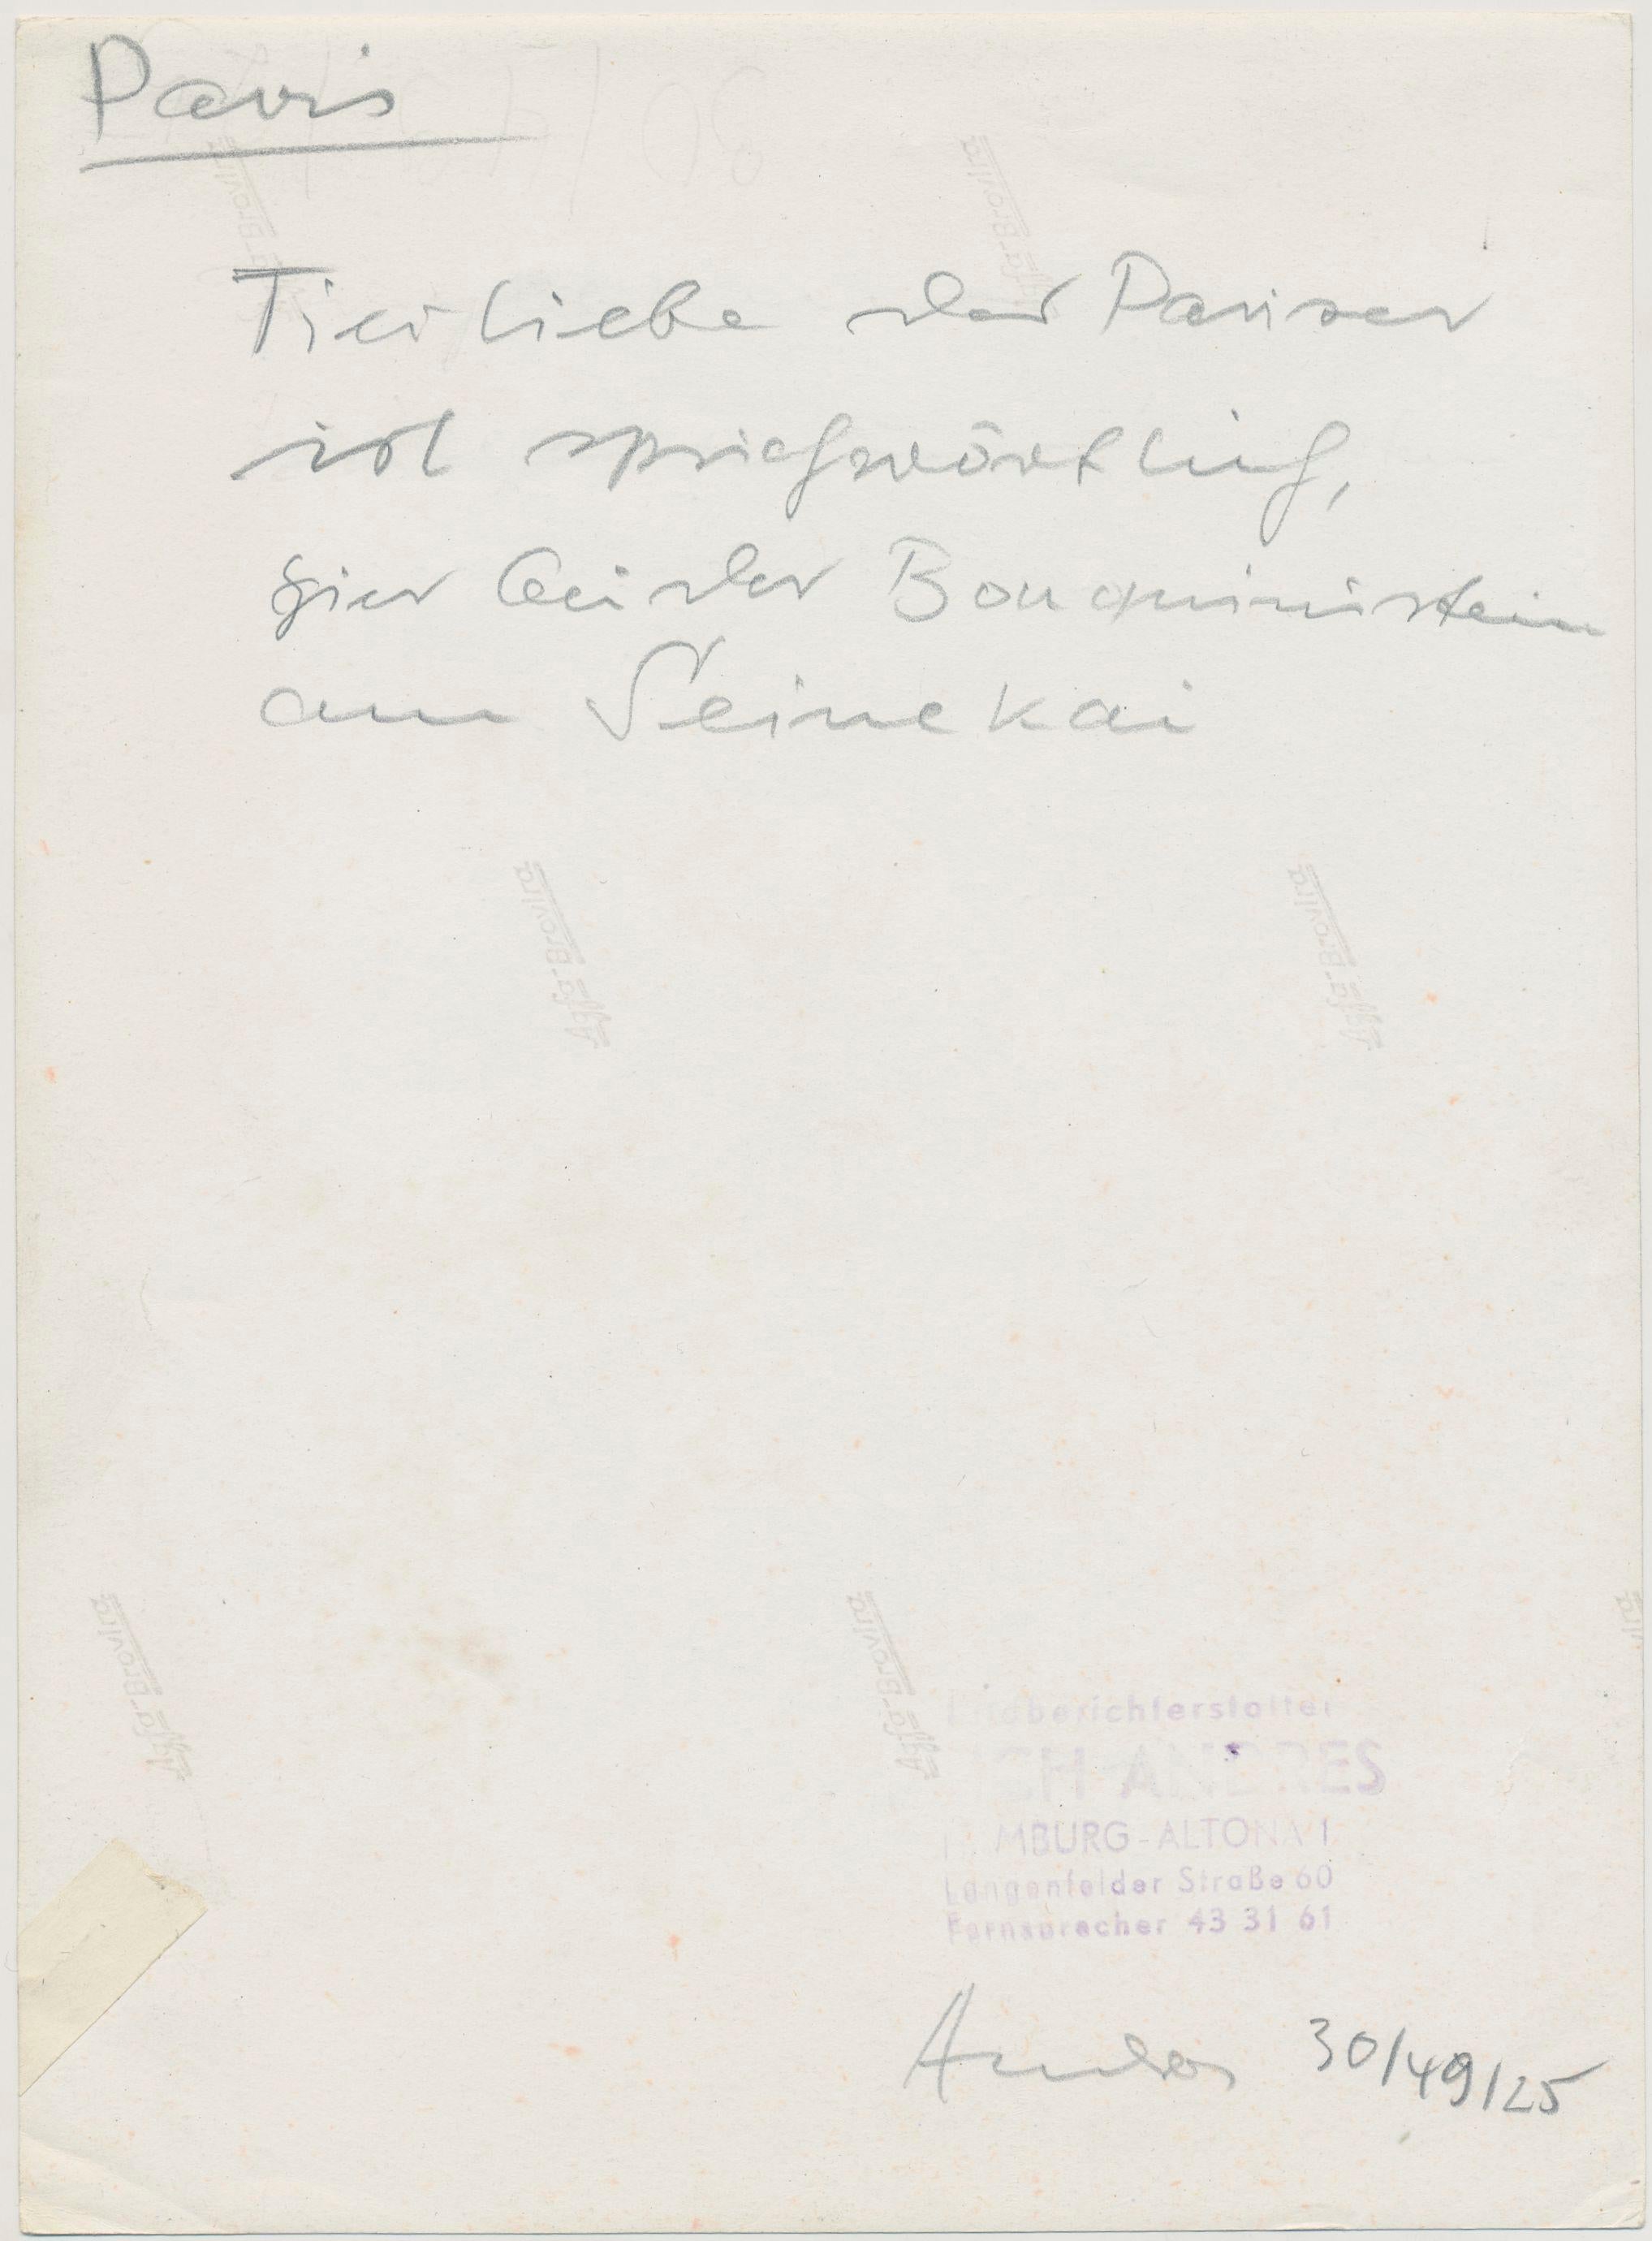 Paris
Tierliebe der Pariser
ist sprichwörtlich,
hier bei der Bouquinistin
am Seinekai
Agfa-Brovira
Agfa-Brovira
Agfa-Brovira
Agfa-Brovira
Agfa-Brovira
Agfa-Brovira
Bildberichterstatter
ANDRES
HAMBURG-ALTONA 1
Langenfelder Straße 60
Fernsprecher 43 31 61
Andres 30/49/25